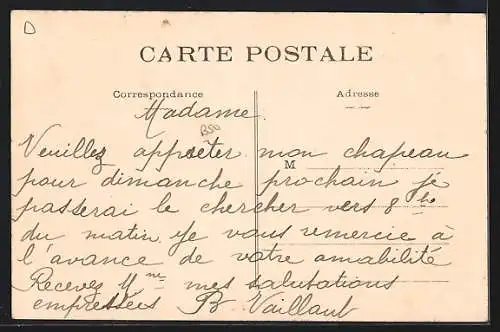 D
CARTE POSTALE
Correspondance
Adresse
Madame
Veuillez apprèter mon chapeau
M
pour dimanche prochain je
passerai le chercher vers 8 h
du matin. Je vous remercie à
l'avance de votre amabilité
Recevez Mme mes salutations
empressées B. Vaillant